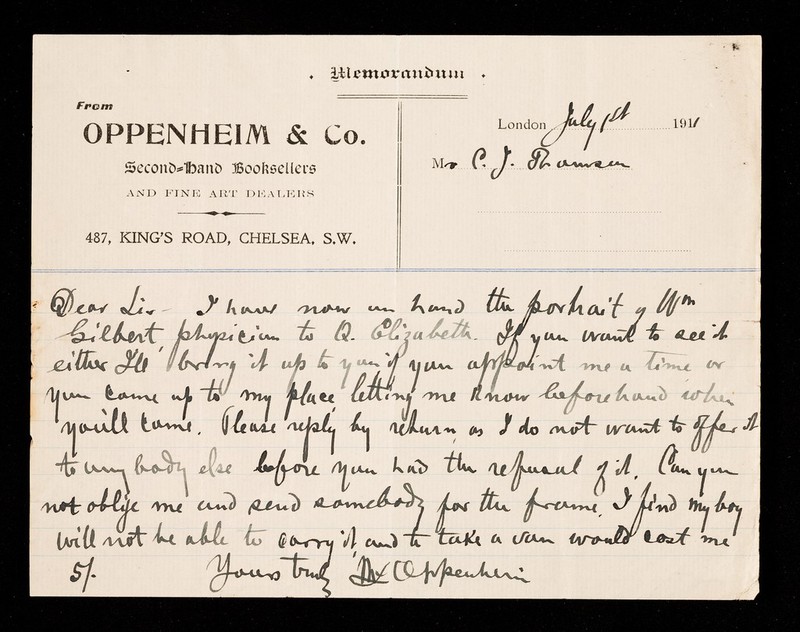 Memorandum
From
OPPENHEIM & Co.
Second-Hand Booksellers
AND FINE ART DEALERS
487, KING'S ROAD, CHELSEA, S.W.
London July 1st 1911
Mr C. J. Thomson
Dear Sir – I have now in hand the portrait of Wm
Gilbert, physician to Q. Elizabeth. If you want to see it
either I'll bring it up to you if you appoint me a time or
you come up to my place, letting me know beforehand when
you'll come. Please reply by return, as I do not want to offer it
to anybody else before you had the refusal of it. Can you
not oblige me and send somebody for the frame. I find my boy
will not be able to carry it, and to take a van would cost me
5/-
Yours truly Oppenheim